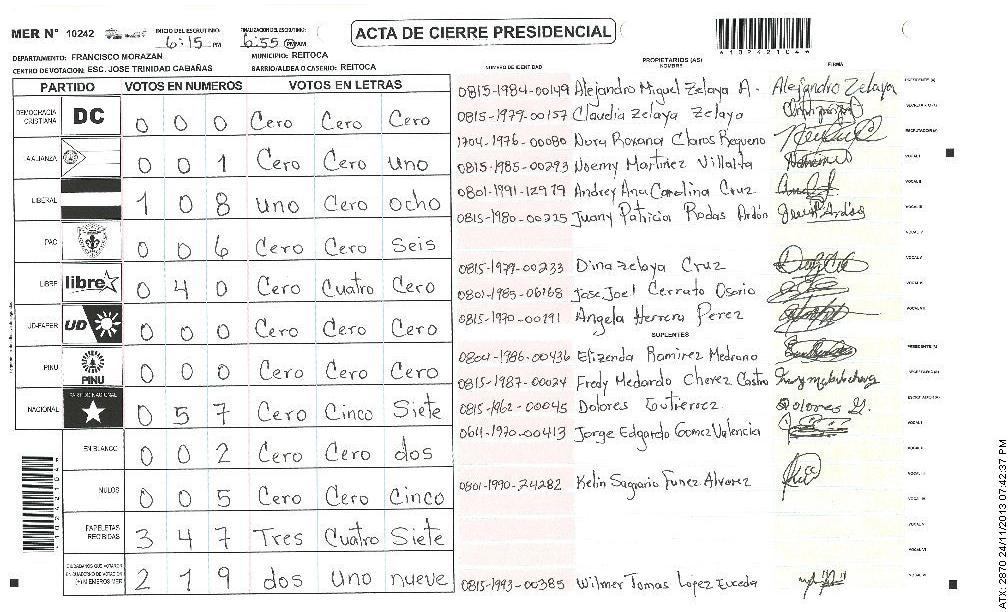 MER N° 10242 INICIO DEL ESCRUTINIO: 6:15 PM FINALIZACION DEL ESCRUTINIO: 6:55 PM
ACTA DE CIERRE PRESIDENCIAL
DEPARTAMENTO: FRANCISCO MORAZAN MUNICIPIO: REITOCA
CENTRO DE VOTACION: ESC. JOSE TRINIDAD CABAÑAS BARRIO/ALDEA O CASERIO: REITOCA
PARTIDO VOTOS EN NUMEROS VOTOS EN LETRAS
DEMOCRACIA CRISTIANA DC 0 0 0 Cero Cero Cero
ALIANZA 0 0 1 Cero Cero uno
LIBERAL 1 0 8 uno Cero ocho
PAC 0 0 6 Cero Cero Seis
LIBRE libre 0 4 0 Cero Cuatro Cero
UD-FAPER UD 0 0 0 Cero Cero Cero
PINU PINU 0 0 0 Cero Cero Cero
NACIONAL PARTIDO NACIONAL 0 5 7 Cero Cinco Siete
EN BLANCO 0 0 2 Cero Cero dos
NULOS 0 0 5 Cero Cero Cinco
PAPELETAS RECIBIDAS 3 4 7 Tres Cuatro Siete
CIUDADANOS QUE VOTARON EN CUADERNO DE VOTACION (+) MIEMBROS MER 2 1 9 dos uno nueve
NUMERO DE IDENTIDAD PROPIETARIOS (AS) NOMBRE FIRMA
0815-1984-00149 Alejandro Miguel Zelaya A. Alejandro Zelaya
0815-1979-00157 Claudia Zelaya Zelaya
1704-1976-00080 Nora Roxana Claros Requeno
0815-1985-00293 Noemy Martinez Villalta
0801-1991-12979 Andrey Ana Carolina Cruz
0815-1980-00225 Juany Patricia Rodas Ardón
0815-1979-00233 Dina Zelaya Cruz
0801-1985-06168 Jose Joel Cerrato Osorio
0815-1970-00191 Angela Herrera Perez
SUPLENTES
0804-1986-00436 Elizenda Ramirez Medrano
0815-1987-00024 Fredy Medardo Cherez Castro
0815-1962-00045 Dolores Gutierrez Dolores G.
0611-1970-00413 Jorge Edgardo Gomez Valencia
0801-1990-24282 Kelin Sagrario Funez Alvarez
0815-1993-00385 Wilmer Tomas Lopez Euceda
ATX-2970 24/11/2013 07:42:37 PM